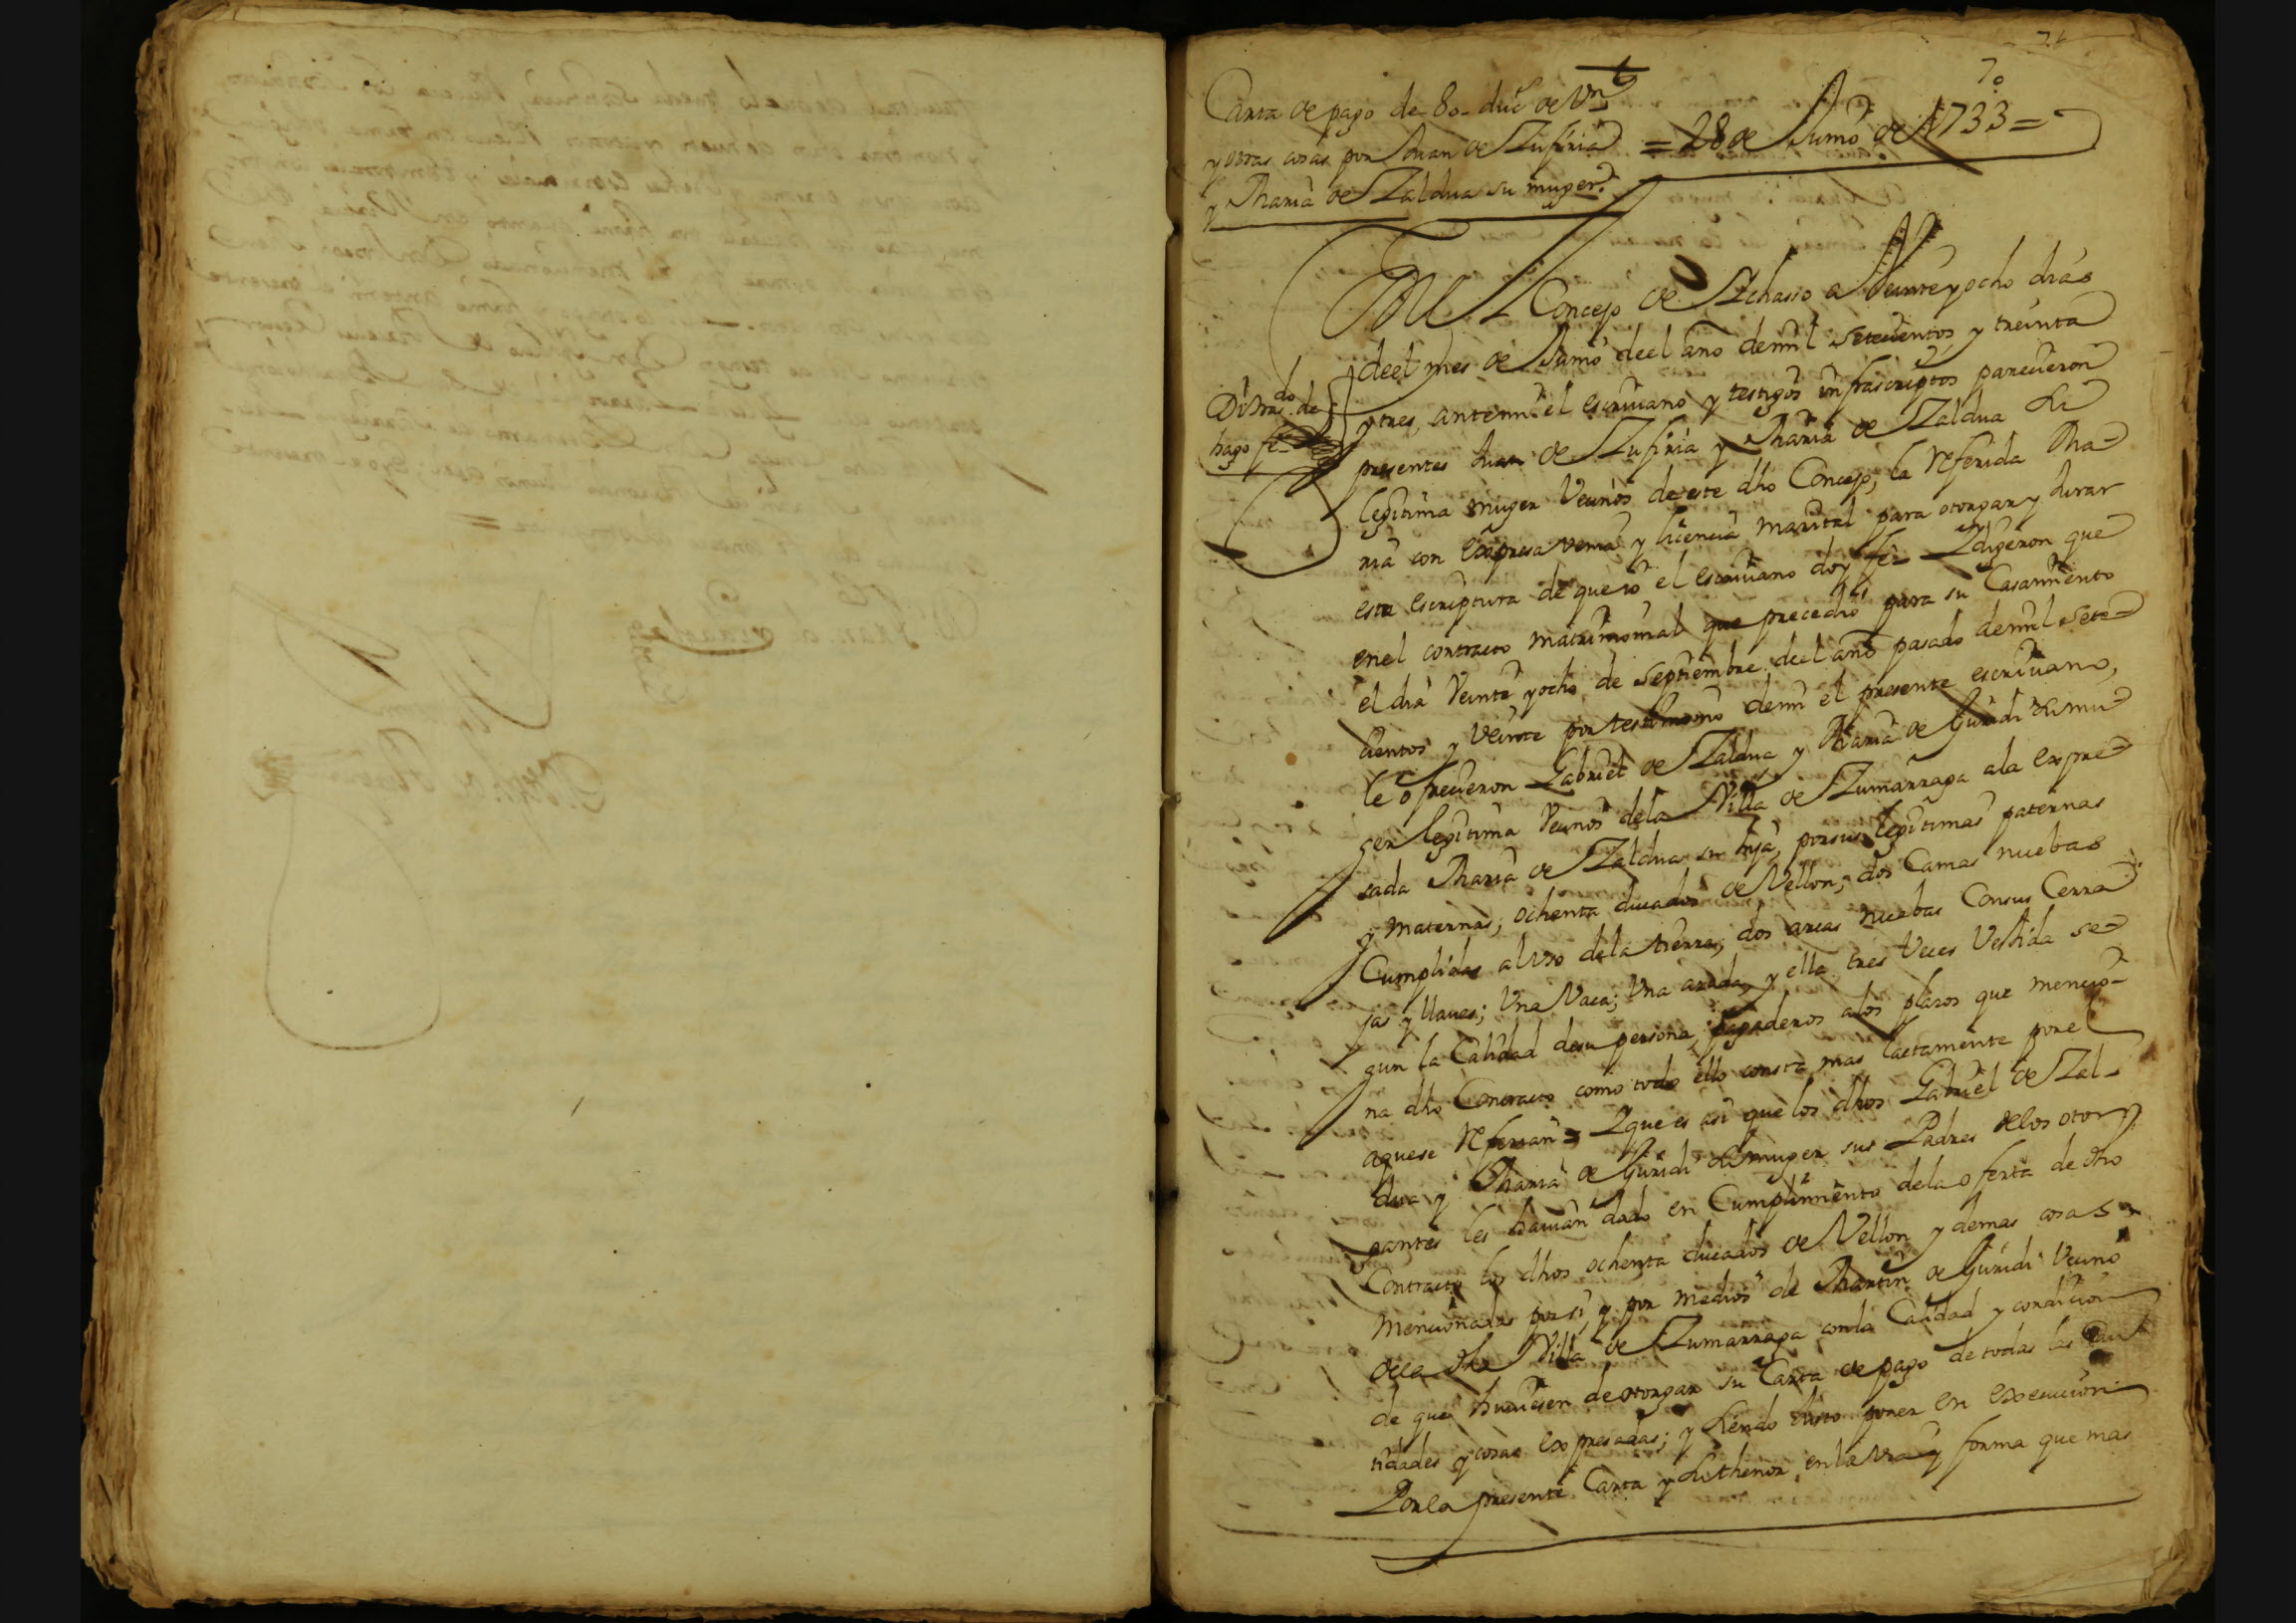 70
Carta de pago de 80 duc<sup>s</sup> de V<sup>n</sup>
y otras cosas por Juan de Zufiria
y Maria de Zaldua su muger.
= 28 de Junio de 1733 =
En el Concejo de Ezchasio a Veinte y ocho dias
de el mes de Junio de el año de mil setecientos y treinta
y tres, ante mi el escriuano y testigos infrascriptos parecieron
presentes Juan de Zufiria y Maria de Zaldua su
legitima muger Vecinos de este dho Concejo, la Referida Ma-
ria con Expresa venia y licencia marital para otorgar y Jurar
esta escriptura de que io el escriuano doy fee Y digeron que
en el contracto matrimonial que precedio para su Casamiento
el dia Veinte y ocho de Septiembre de el año pasado de mil Sete-
cientos y Veinte por testimonio de mi el presente escriuano,
le ofrecieron Gabriel de Zaldua y Maria de Guridi su mu-
ger legitima Vecinos de la Villa de Zumarraga a la expre-
sada Maria de Zaldua su hija, por sus legitimas paternas
y maternas; ochenta ducados de Vellon; dos Camas nuebas
Cumplidas al vso de la tierra; dos arcas nuebas Con sus Cerra-
jas y llaues; Vna Vaca; Vna azada, y ella tres Veces Vestida se-
gun la Calidad de su persona; pagaderos a los plazos que mencio-
na dho Contracto como todo ello consta mas lactamente por el
a que se Referian = Y que es asi que los dhos Gabriel de Zal-
dua y Maria de Guridi su muger sus Padres de los otor-
gantes les hauian dado en Cumplimiento de la oferta de dho
Contracto los dhos ochenta ducados de Vellon y demas cosas
mencionadas por si, y por medios de Martin de Guridi Vecino
de la dha Villa de Zumarraga con la Calidad y condicion
de que huuiesen de otorgar su Carta de pago de todas las Can
tidades y cosas Expresadas; y siendo Justo poner en Execucion
Por la presente Carta y su thenor, en la via y forma que mas